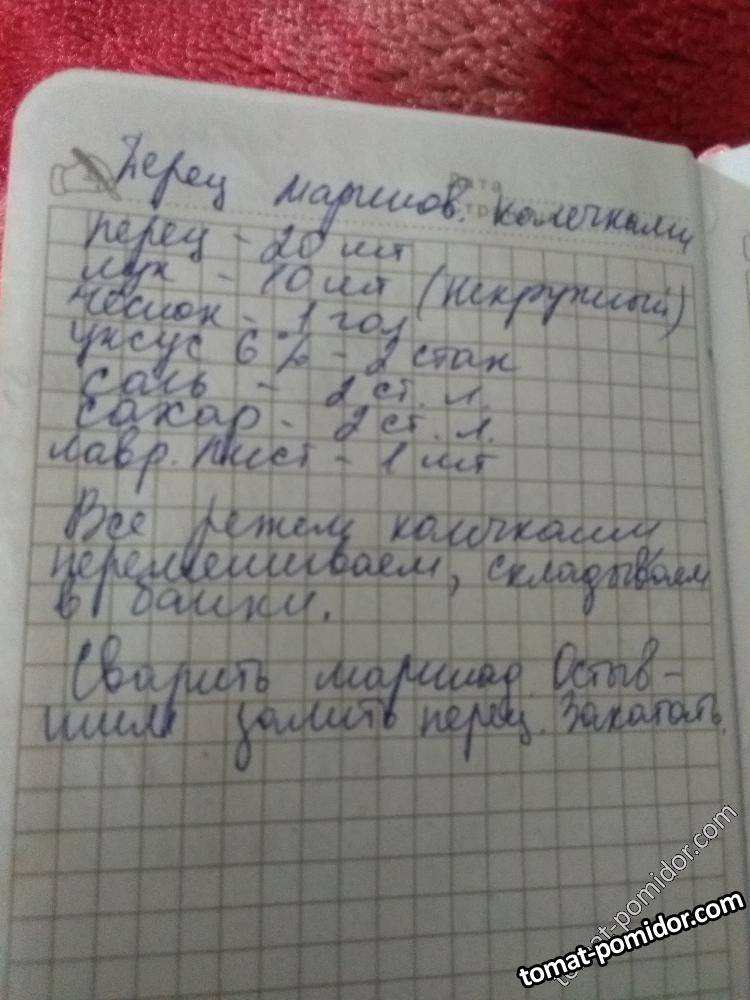 Перец маринов. колечками
перец - 20 шт
лук - 10 шт (некрупный)
чеснок - 1 гол
уксус 6% - 2 стак
соль - 2 ст. л.
сахар - 2 ст. л.
лавр. лист - 1 шт
Все режем колечками
перемешиваем, складываем
в банки.
Сварить маринад. Остыв-
шим залить перец. Закатать.
tomat-pomidor.com
tomat-pomidor.com